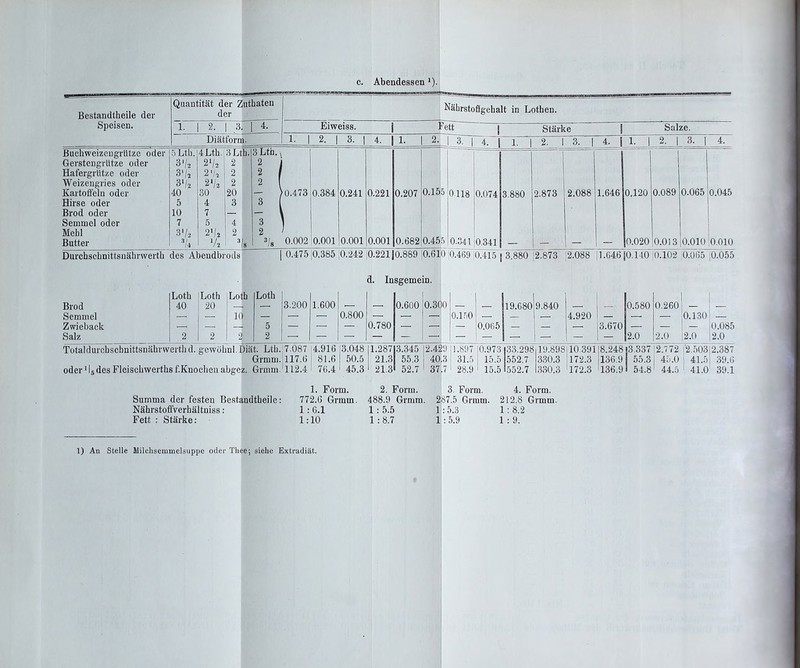 c. Abendessen ¹).
Bestandtheile der Speisen. | Quantität der Zuthaten der | Nährstoffgehalt in Lothen.
1. | 2. | 3. | 4. | Eiweiss. | Fett | Stärke | Salze.
Diätform. | 1. | 2. | 3. | 4. | 1. | 2. | 3. | 4. | 1. | 2. | 3. | 4. | 1. | 2. | 3. | 4.
Buchweizengrütze oder | 5 Lth. | 4 Lth. | 3 Lth. | 3 Lth.
Gerstengrütze oder | 3½ | 2½ | 2 | 2
Hafergrütze oder | 3½ | 2½ | 2 | 2
Weizengries oder | 3½ | 2½ | 2 | 2
Kartoffeln oder | 40 | 30 | 20 | — | 0.473 | 0.384 | 0.241 | 0.221 | 0.207 | 0.155 | 0 118 | 0.074 | 3.880 | 2.873 | 2.088 | 1.646 | 0.120 | 0.089 | 0.065 | 0.045
Hirse oder | 5 | 4 | 3 | 3
Brod oder | 10 | 7 | — | —
Semmel oder | 7 | 5 | 4 | 3
Mehl | 3½ | 2½ | 2 | 2
Butter | ¾ | ½ | ³/₈ | ³/₈ | 0.002 | 0.001 | 0.001 | 0.001 | 0.682 | 0.455 | 0.341 | 0 341 | — | — | — | — | 0.020 | 0.013 | 0.010 | 0 010
Durchschnittsnährwerth des Abendbrods | 0.475 | 0.385 | 0.242 | 0.221 | 0.889 | 0.610 | 0.469 | 0.415 | 3.880 | 2.873 | 2.088 | 1.646 | 0.140 | 0.102 | 0.065 | 0.055
d. Insgemein.
Loth | Loth | Loth | Loth
Brod | 40 | 20 | — | — | 3.200 | 1.600 | — | — | 0.600 | 0.300 | — | — | 19.680 | 9.840 | — | — | 0.580 | 0.260 | — | —
Semmel | — | — | 10 | — | — | — | 0.800 | — | — | — | 0.150 | — | — | — | 4.920 | — | — | — | 0.130 | —
Zwieback | — | — | — | 5 | — | — | — | 0.780 | — | — | — | 0.065 | — | — | — | 3.670 | — | — | — | 0.085
Salz | 2 | 2 | 2 | 2 | — | — | — | — | — | — | — | — | — | — | — | — | 2.0 | 2.0 | 2.0 | 2.0
Totaldurchschnittsnährwerth d. gewöhnl. Diät. Lth. | 7.087 | 4.916 | 3.048 | 1.287 | 3.345 | 2.429 | 1.897 | 0.973 | 33.298 | 19.898 | 10 391 | 8.248 | 3 337 | 2.772 | 2.503 | 2.387
Grmm. | 117.6 | 81.6 | 50.5 | 21.3 | 55.3 | 40.3 | 31.5 | 15.5 | 552.7 | 330.3 | 172.3 | 136 9 | 55.3 | 45.0 | 41.5 | 39.6
oder ¹/₅ des Fleischwerths f. Knochen abgez. Grmm. | 112.4 | 76.4 | 45.3 | 21.3 | 52.7 | 37.7 | 28.9 | 15.5 | 552.7 | 330.3 | 172.3 | 136.9 | 54.8 | 44.5 | 41.0 | 39.1
1. Form. 2. Form. 3. Form. 4. Form.
Summa der festen Bestandtheile: 772.6 Grmm. 488.9 Grmm. 287.5 Grmm. 212.8 Grmm.
Nährstoffverhältniss: 1 : 6.1 1 : 5.5 1 : 5.3 1 : 8.2
Fett : Stärke: 1:10 1 : 8.7 1 : 5.9 1 : 9.
1) An Stelle Milchsemmelsuppe oder Thee; siehe Extradiät.